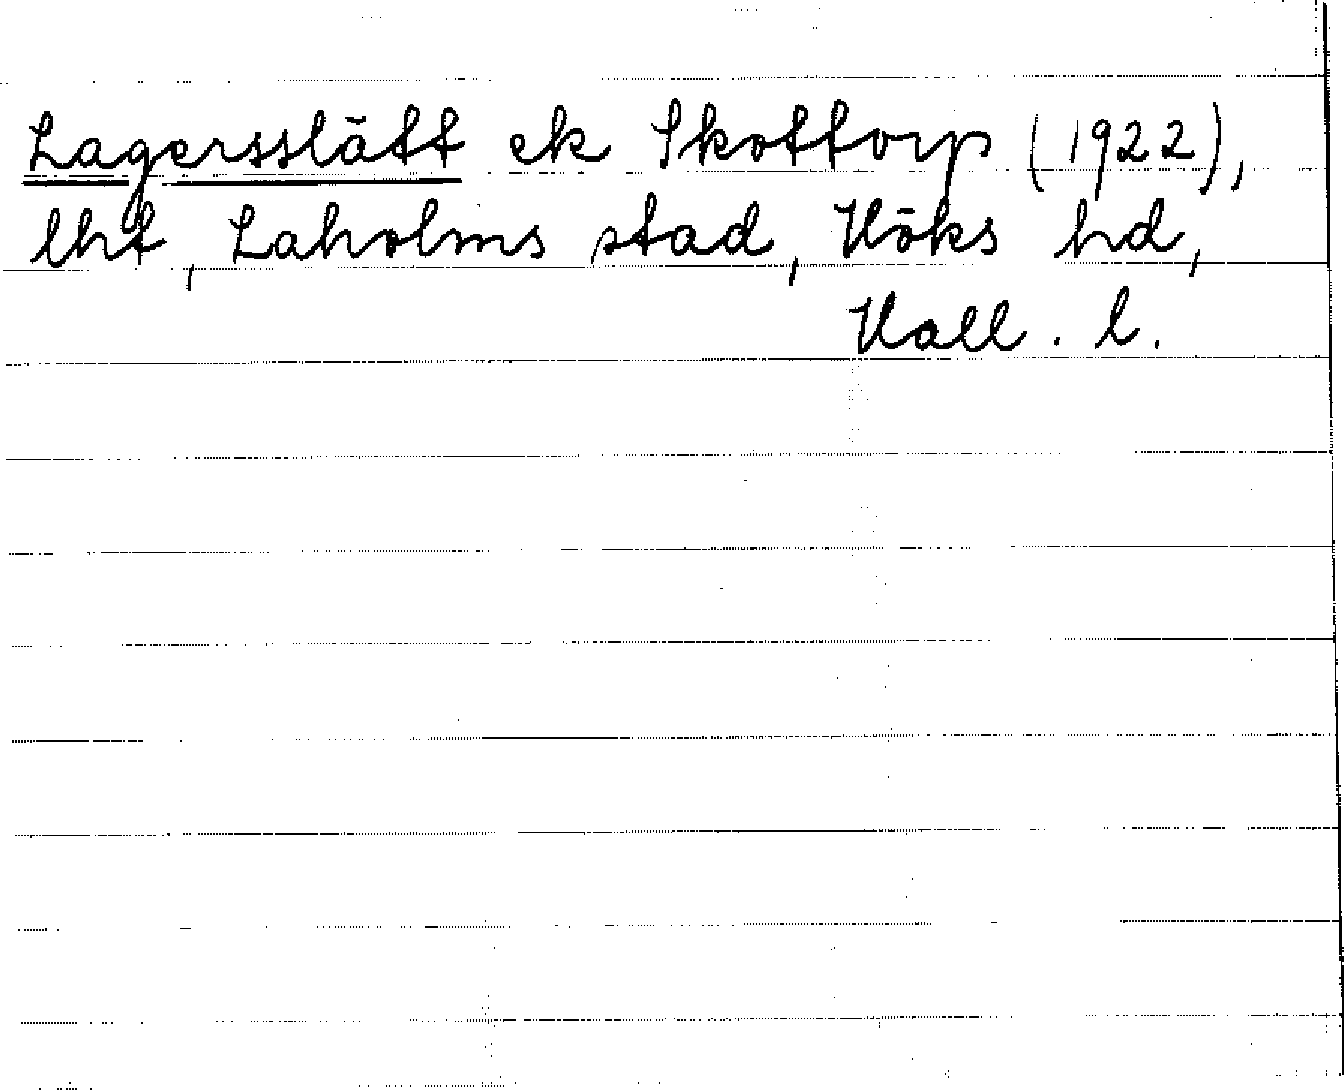 Lagersslätt ek Skottorp (1922),
lht, Laholms stad, Höks hd,
Hall. l.